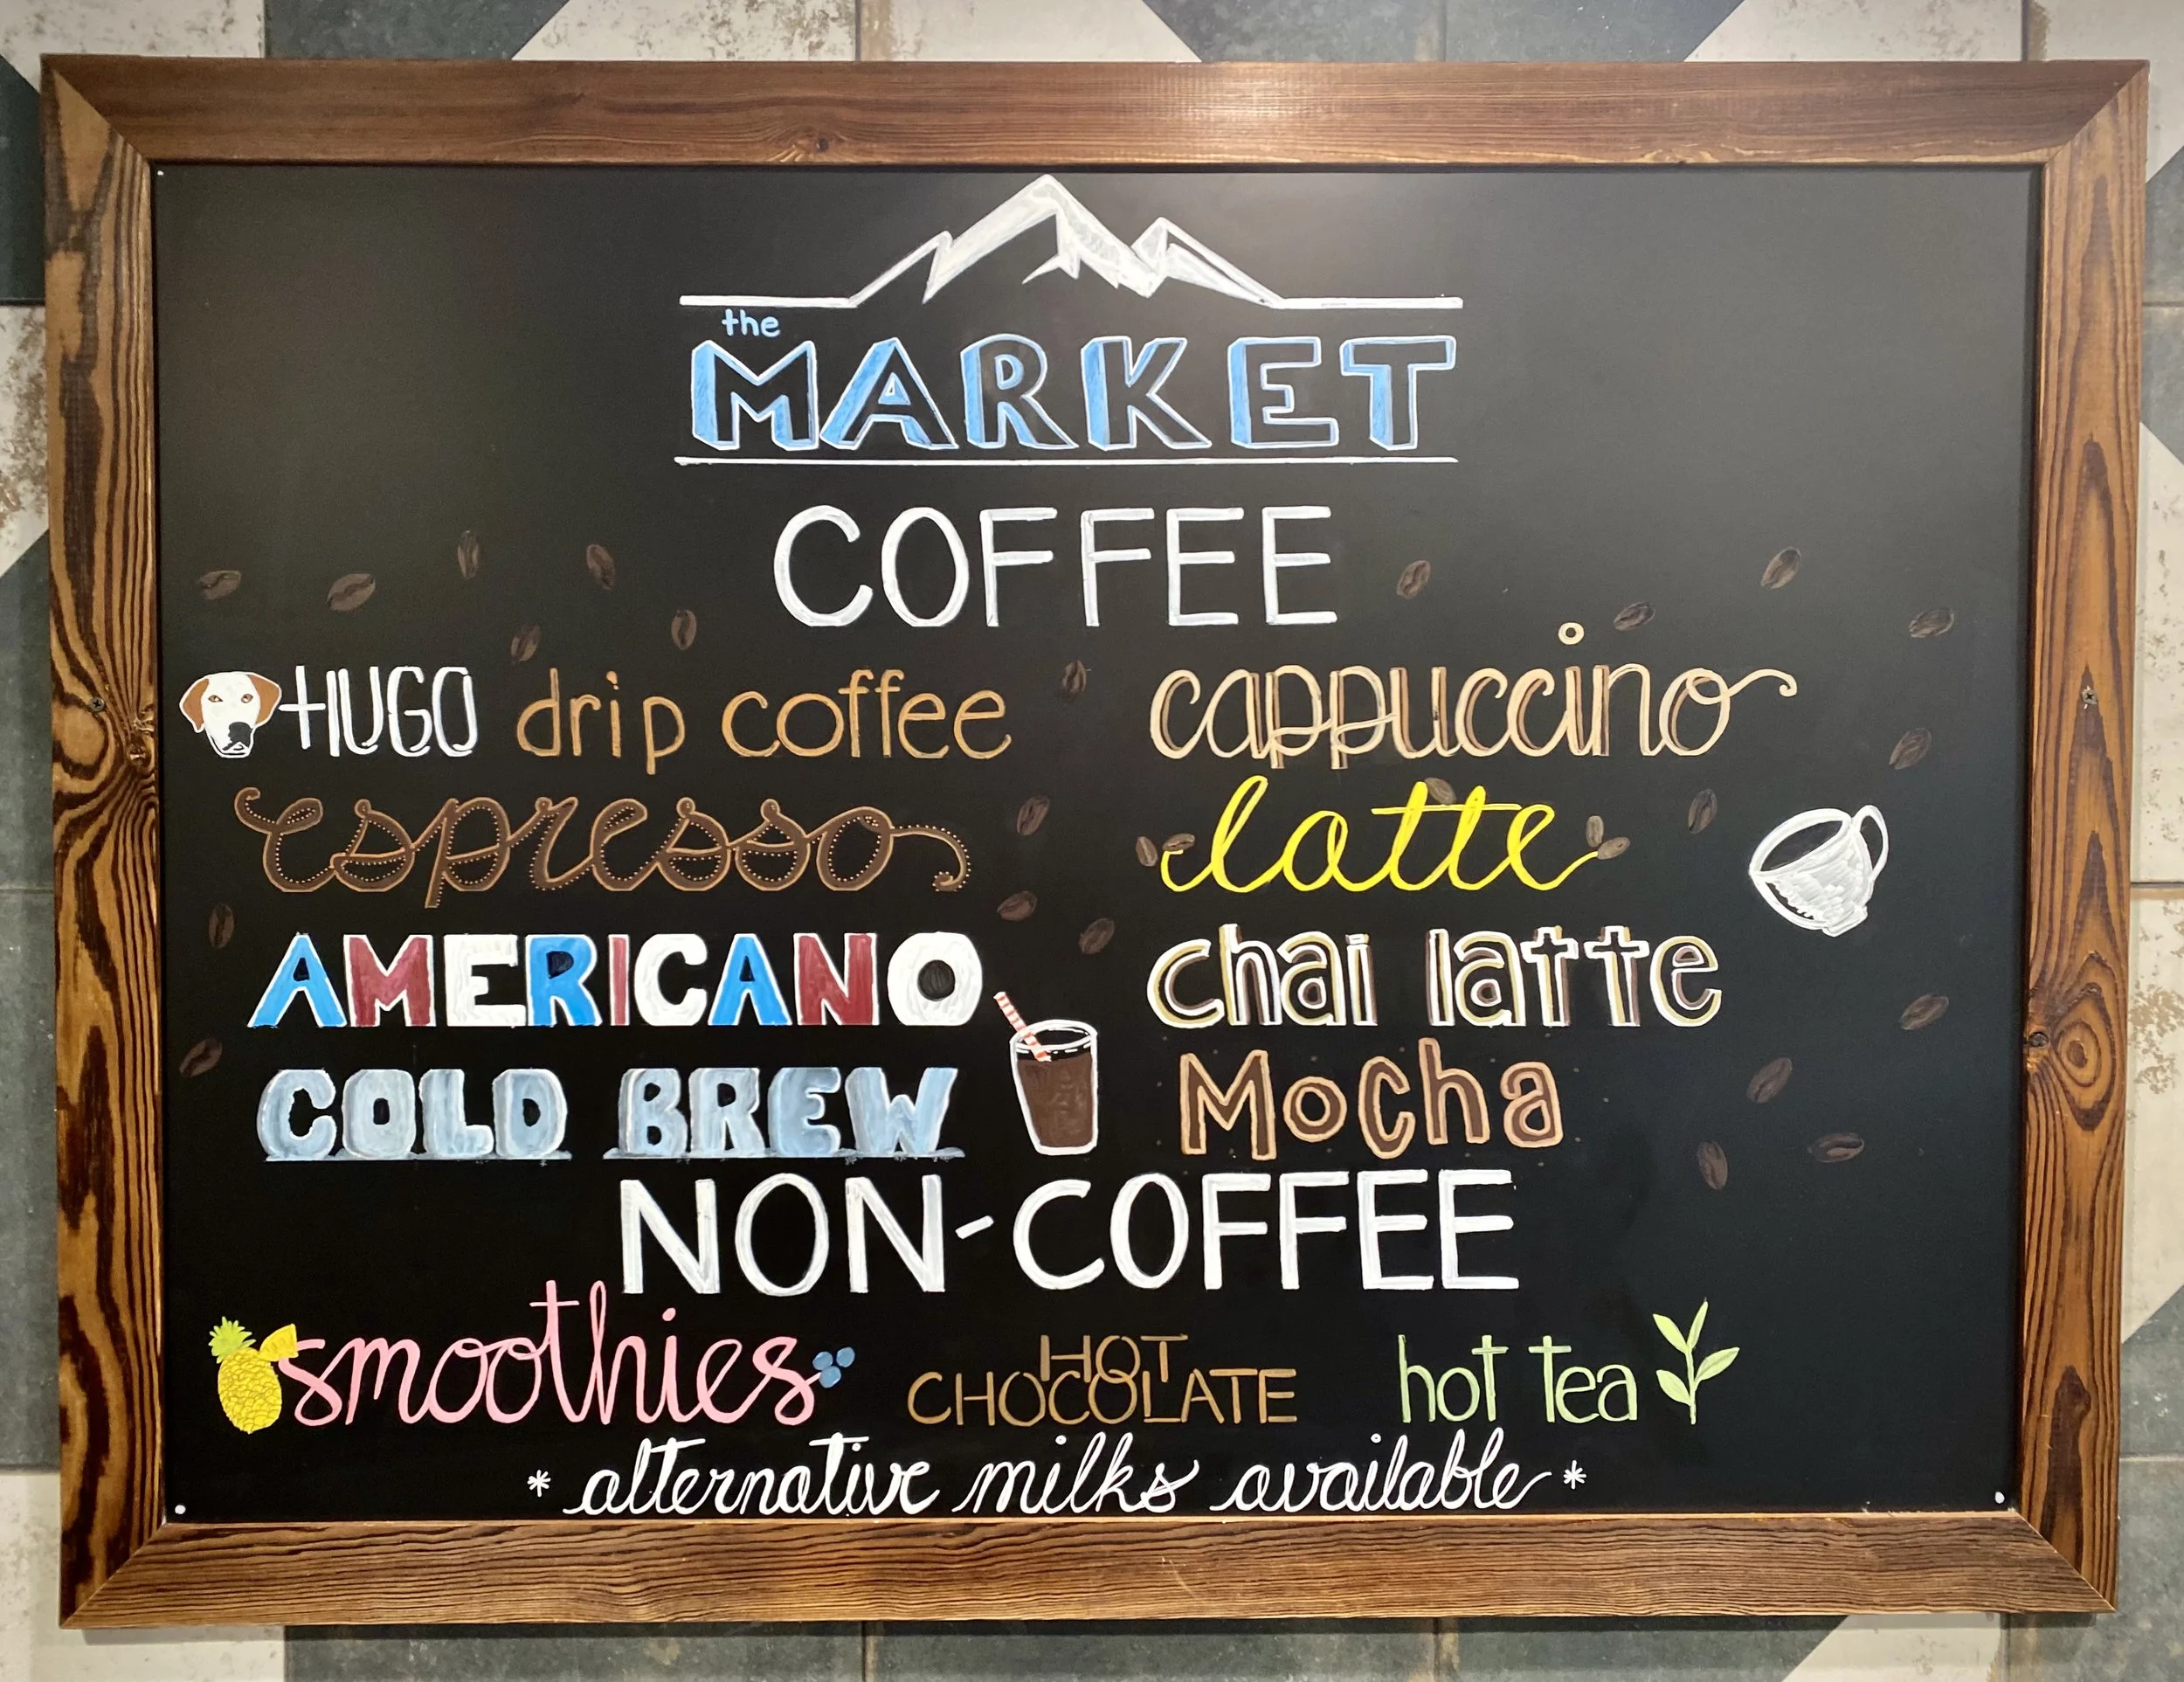 the
MARKET
COFFEE
HUGO drip coffee
cappuccino
espresso
latte
AMERICANO
chai latte
COLD BREW
Mocha
NON-COFFEE
smoothies
HOT
CHOCOLATE
hot tea
* alternative milks available *